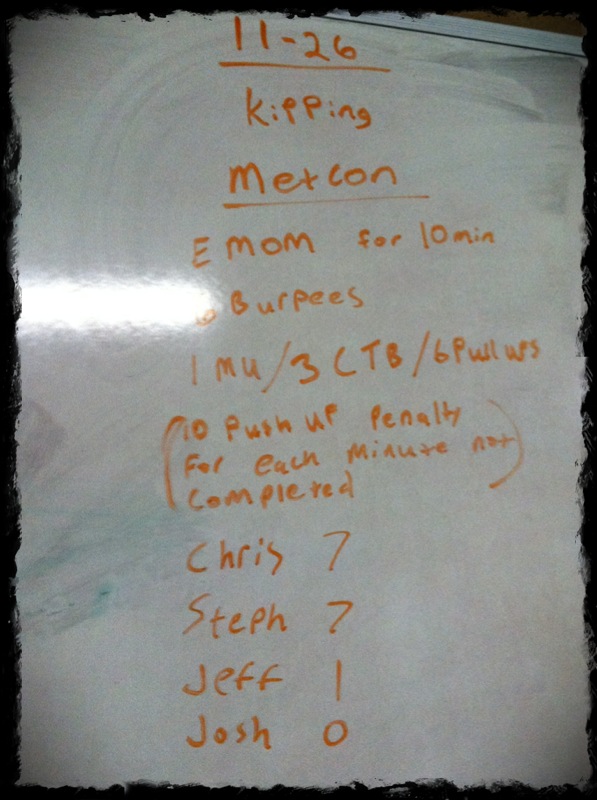 11-26
Kipping
Metcon
EMOM for 10min
6 Burpees
1 MU/3 CTB/6 Pull ups
(10 Push up Penalty
For each minute not)
Completed
Chris 7
Steph 7
Jeff 1
Josh 0